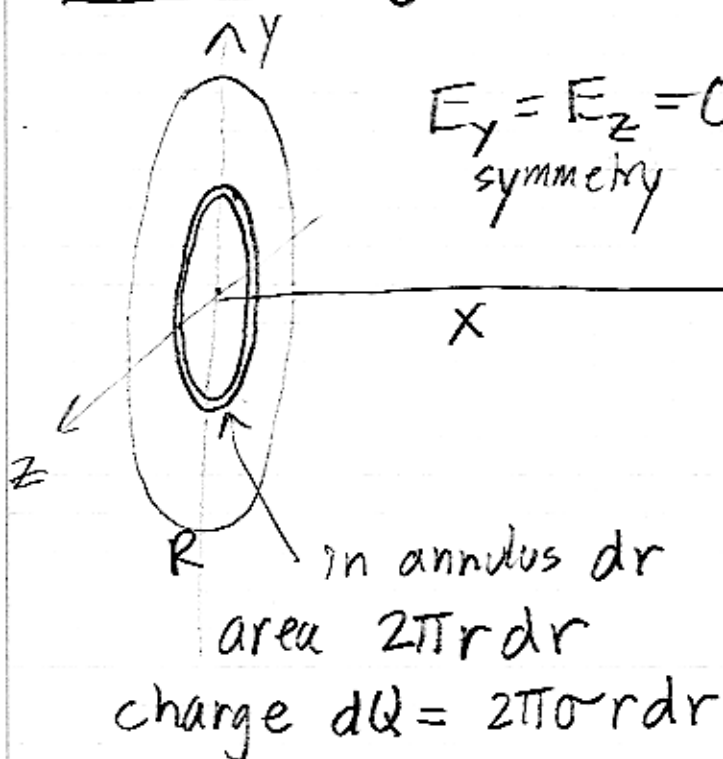 Y
E_y = E_z = 0
symmetry
X
Z
R
in annulus dr
area 2πrdr
charge dQ = 2πσrdr